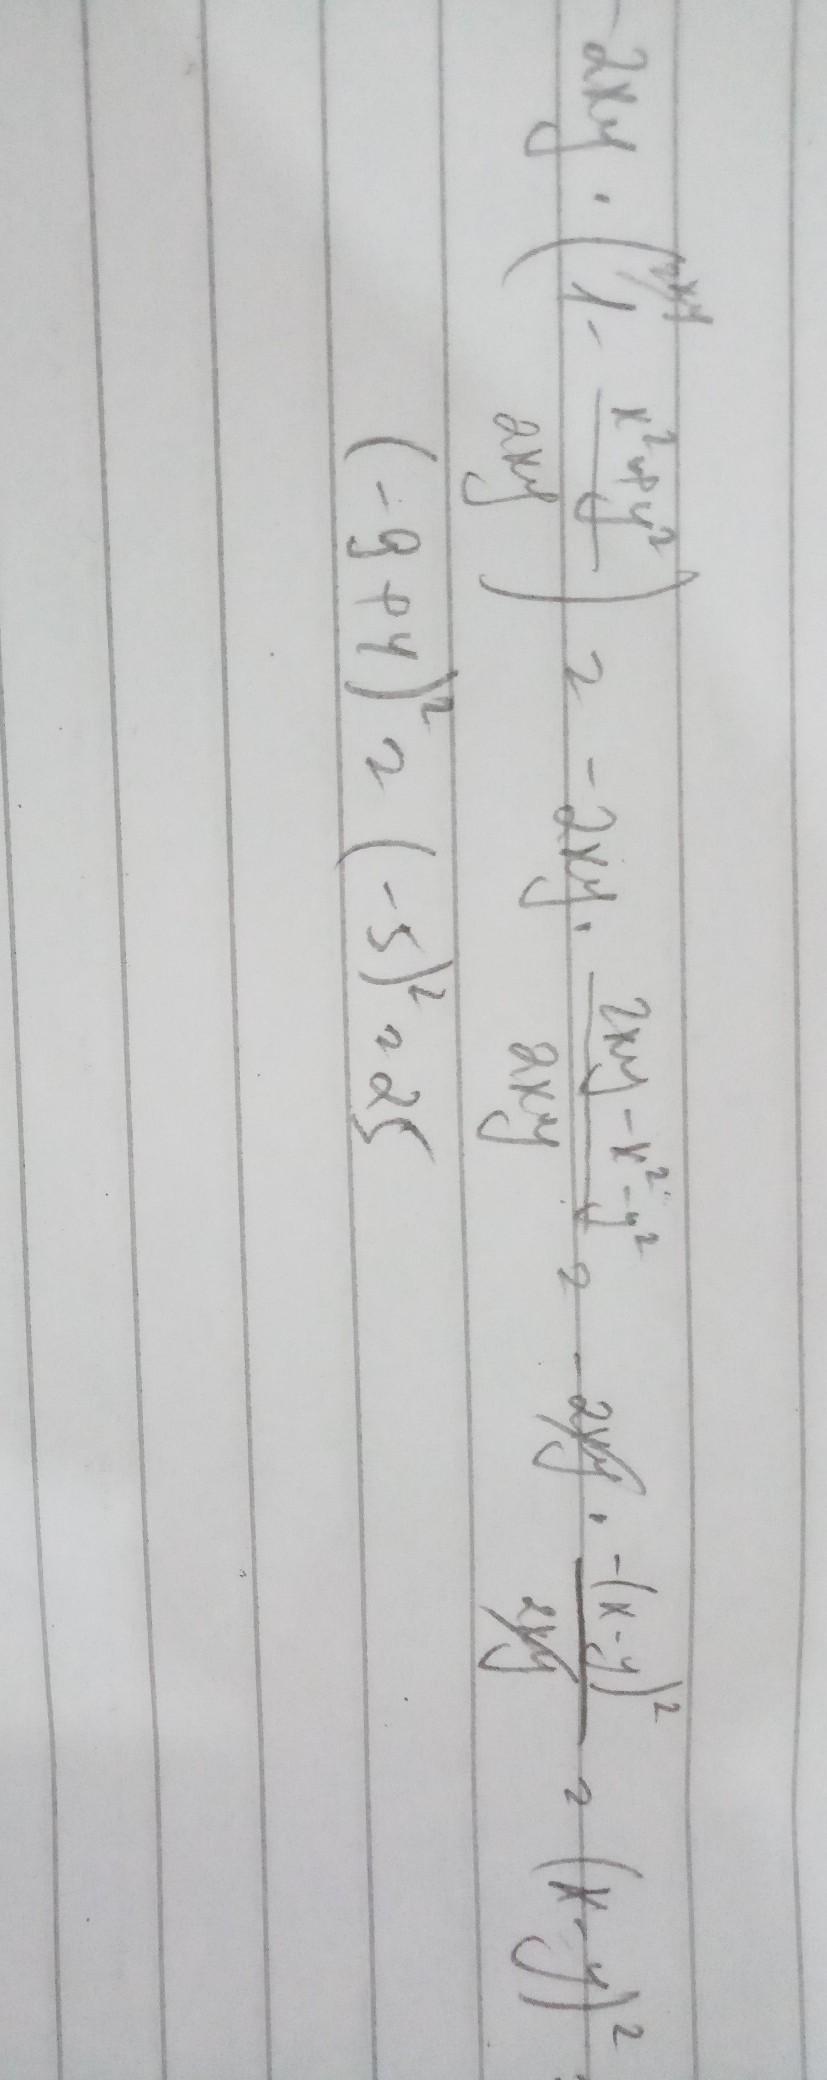 -2xy · (1 - x²+y²/2xy) = -2xy · 2xy - x² - y²/2xy = -2xy · -(x-y)²/2xy = (x-y)²
(-9+4)² = (-5)² = 25